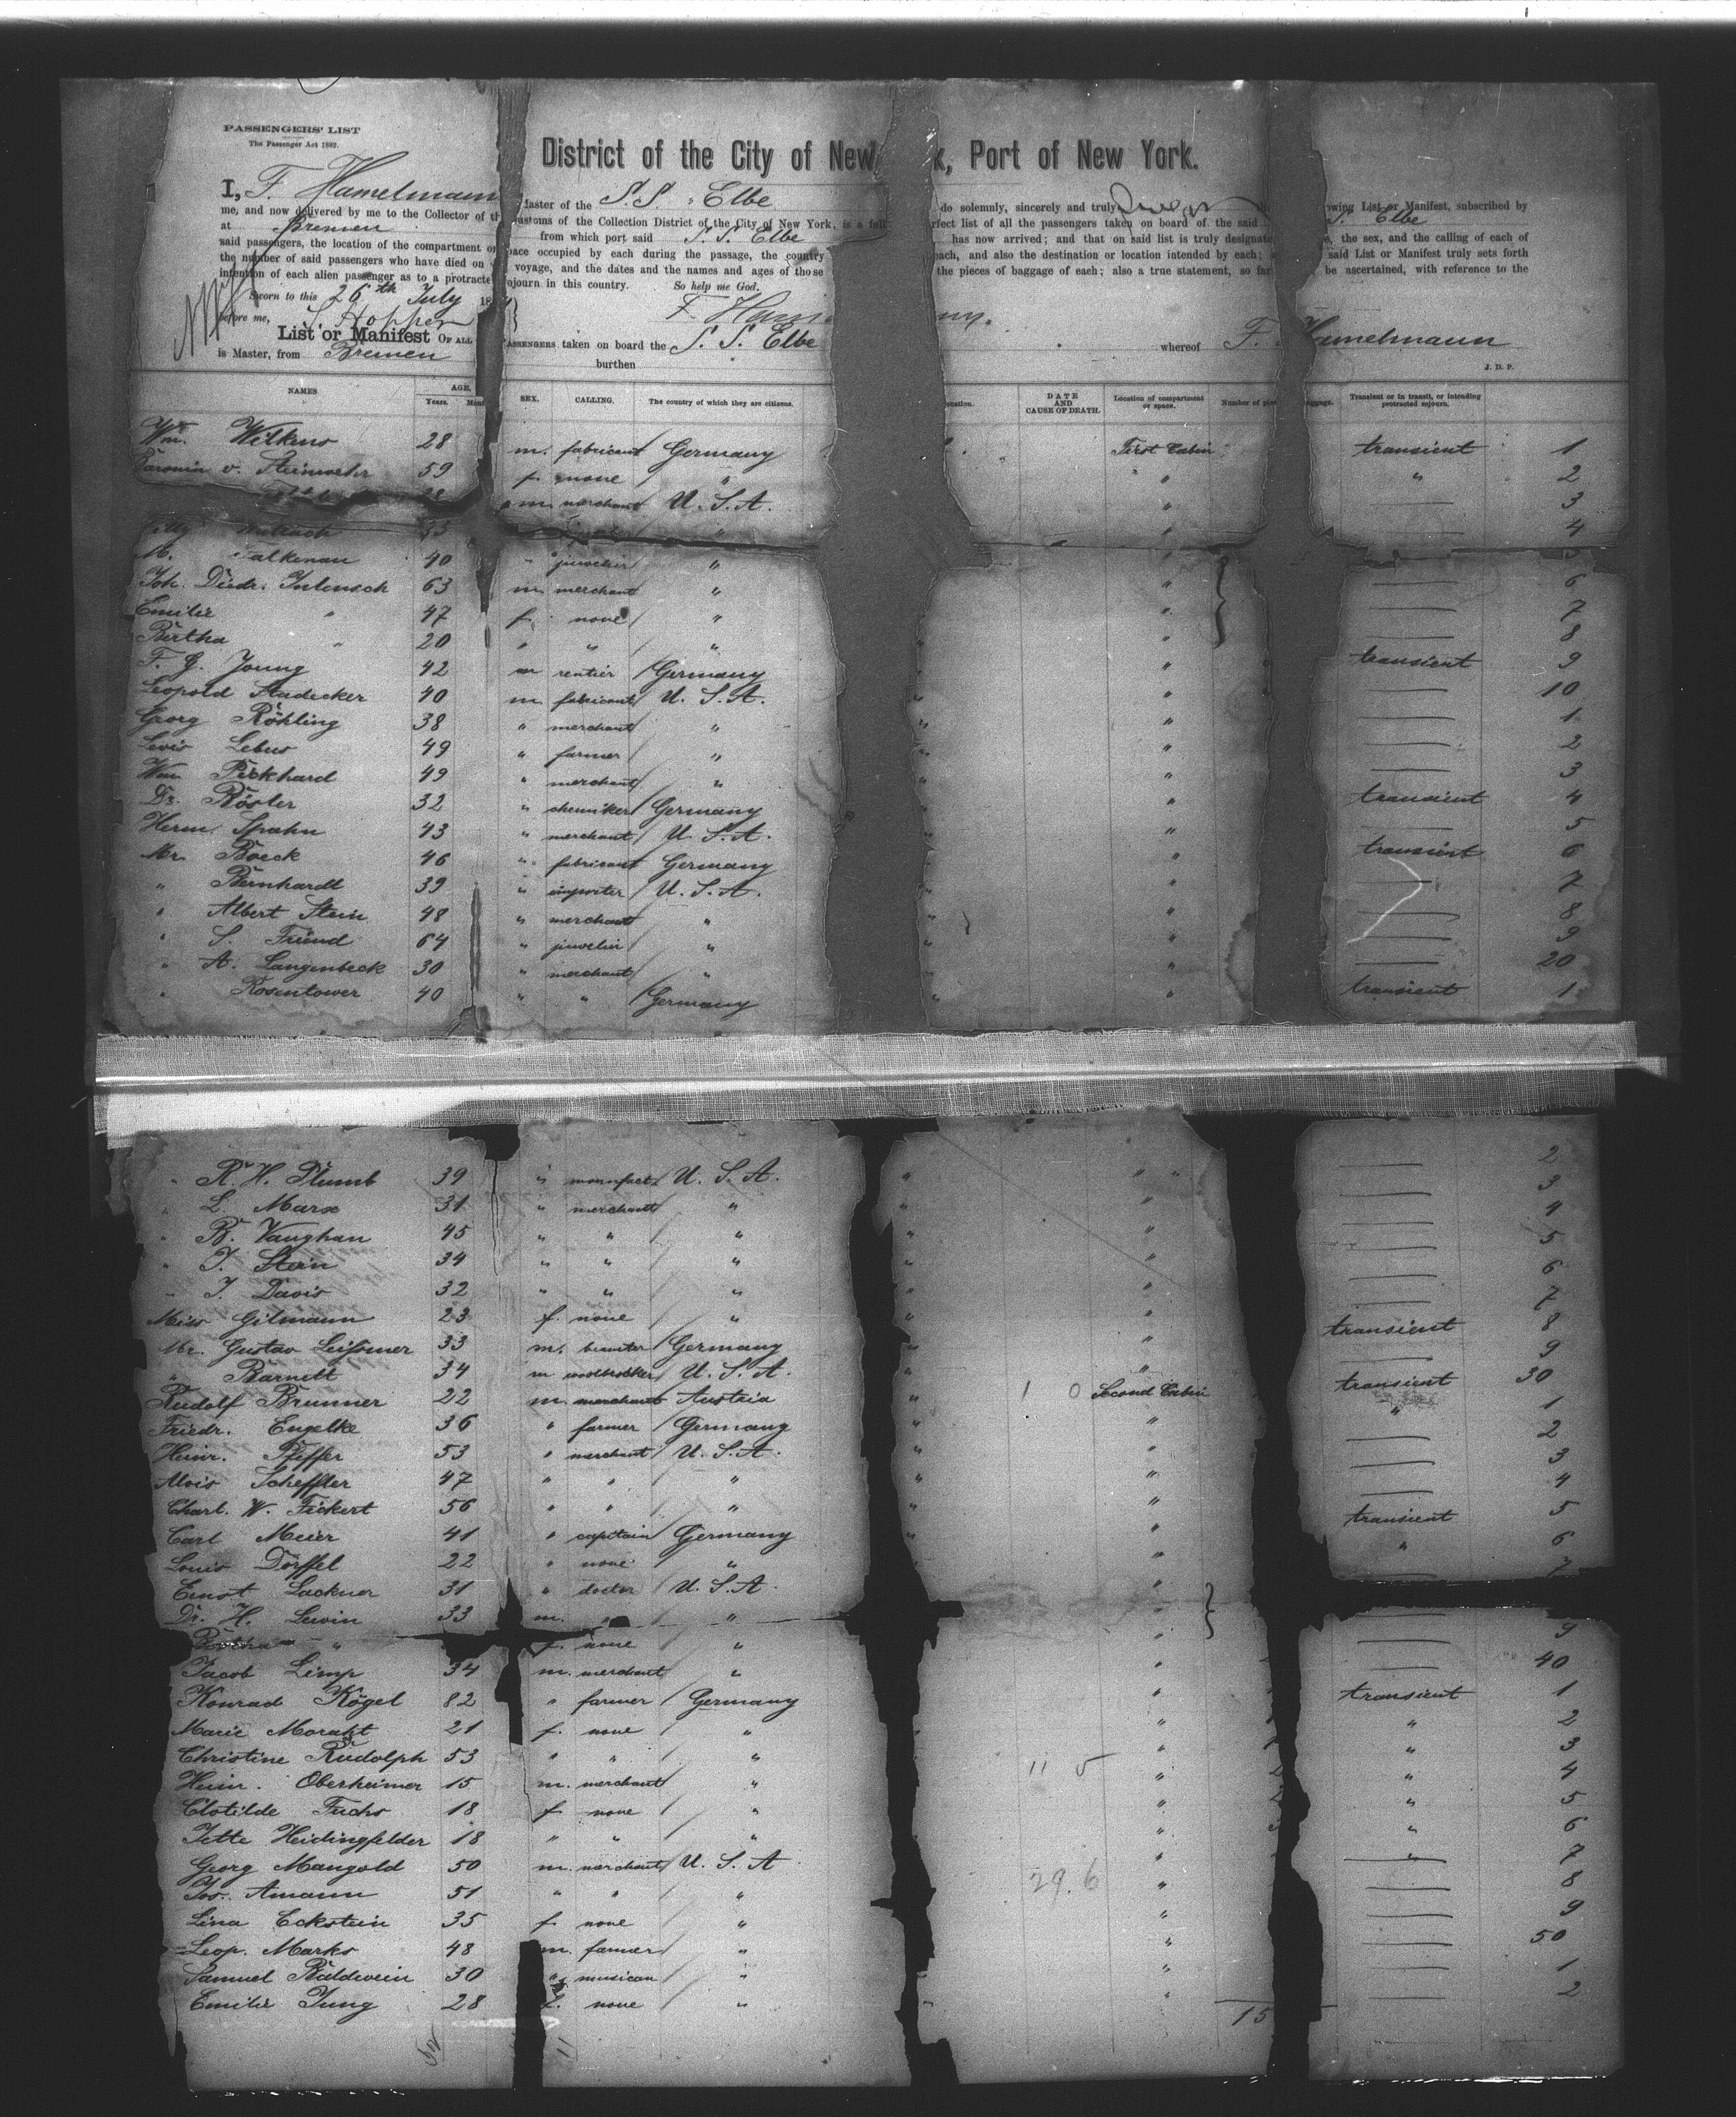 PASSENGERS' LIST
The Passenger Act 1882.
District of the City of New k, Port of New York.
I, F. Hamelmann Master of the S.S. "Elbe do solemnly, sincerely and truly owing List or Manifest, subscribed by
me, and now delivered by me to the Collector of th ustoms of the Collection District of the City of New York, is a full rfect list of all the passengers taken on board of the said S. Elbe
at Bremen from which port said S. S. Elbe has now arrived; and that on said list is truly designate the sex, and the calling of each of
said passengers, the location of the compartment or pace occupied by each during the passage, the country each, and also the destination or location intended by each; said List or Manifest truly sets forth
the number of said passengers who have died on voyage, and the dates and the names and ages of those the pieces of baggage of each; also a true statement, so far be ascertained, with reference to the
intention of each alien passenger as to a protracte ojourn in this country. So help me God.
Sworn to this 26th July 18
before me, S. Hopper F. Ham
List or Manifest OF ALL PASSENGERS taken on board the S. S. Elbe whereof F. Hamelmann
is Master, from Bremen burthen
J. D. P.
NAMES AGE. Years. Mont SEX. CALLING. The country of which they are citizens. ocation. DATE AND CAUSE OF DEATH. Location of compartment or space. Number of pie aggage. Transient or in transit, or intending protracted sojourn.
Wm. Wilkens 28 m. fabricant Germany " First Cabin transient 1
Baronin v. Steinwehr 59 f. none " " " 2
38 m. merchant U. S. A. " — 3
35 " " — 4
M. Falkenau 40 " juvelir " " 5
Joh. Diedr. Intemsch 63 m. merchant " " — 6
Emilie " 47 f. none " " — 7
Bertha " 20 " " " " — 8
F. G. Young 42 m rentier Germany " transient 9
Leopold Stadecker 40 m. fabricant U. S. A. " — 10
Georg Röhling 38 " merchant " " — 1
Levis Lebus 49 " farmer " " — 2
Wm Pickhard 49 " merchant " " — 3
Dr. Rösler 32 " chemiker Germany " transient 4
Herm. Spahn 43 " merchant U. S. A. " — 5
Mr. Boeck 46 " fabricant Germany " transient 6
" Bernhardt 39 " importer U. S. A. " — 7
" Albert Stein 48 " merchant " " — 8
" S. Freund 64 " juvelir " " — 9
" A. Langenbeck 30 " merchant " " — 20
" Rosentower 40 " " Germany " transient 1
" R. H. Plumb 39 " manufact. U. S. A. " " — 2
" L. Marx 31 " merchant " " — 3
" B. Vaughan 45 " " " " — 4
" J. Stein 34 " " " " — 5
" J. Davis 32 " " " " — 6
Miss Gilmann 23 f. none " " — 7
Mr. Gustav Leissner 33 m. beamter Germany " transient 8
" Barnett 34 m woolbrokker U. S. A. " — 9
Rudolf Brunner 22 m. merchant Austria " 1 0 Second Cabin transient 30
Friedr. Engelke 36 " farmer Germany " " " 1
Heinr. Pfeffer 53 " merchant U. S. A. " " — 2
Alois Scheffler 47 " " " " " — 3
Charl. W. Fickert 56 " " " " " — 4
Carl Meier 41 " capitain Germany " " transient 5
Louis Dörffel 22 " none " " " 6
Ernst Lackner 31 " doctor U. S. A. " 7
Dr. H. Lewin 33 m. " " " —
Bertha " f. none " " — 9
Jacob Limp 34 m. merchant " " — 40
Konrad Kögel 82 " farmer Germany " transient 1
Marie Moratzt 21 f. none " " " 2
Christine Rudolph 53 " " " " " 3
Heinr. Oberheimer 15 m. merchant " 11 5 " " 4
Clotilde Fuchs 18 f none " " " 5
Jette Heidingfelder 18 " " " " " 6
Georg Mangold 50 m. merchant U. S. A " — 7
Jos. Amann 51 " " " 29. 6 " — 8
Lina Eckstein 35 f. none " " — 9
Leop. Marks 48 m. farmer " " — 50
Samuel Baldwein 30 " musican " " — 1
Emilie Jung 28 f. none " " — 2
52 11 15